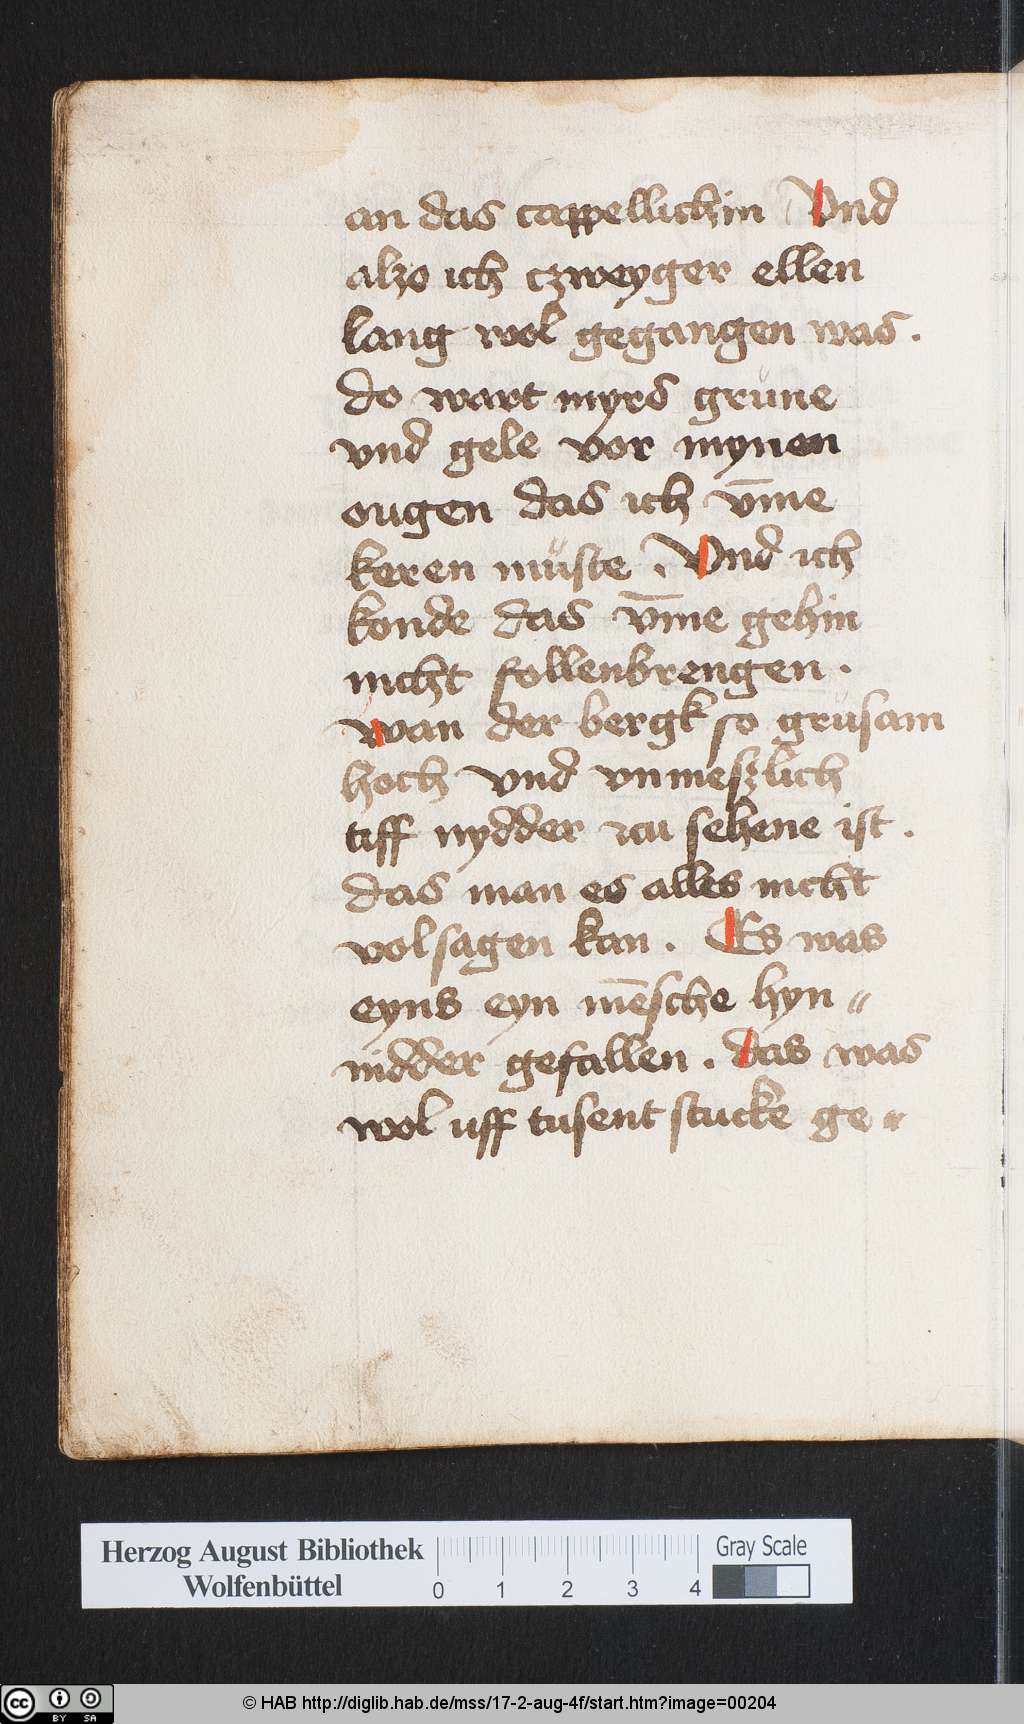 an das cappellichin Vnd
alzo ich czweyger ellen
lang wol gegangen was .
do wart myrs grüne
vnd gele vor mynen
ougen das ich vm̄e
keren müste . Vnd ich
konde das vm̄e gehin
nicht follenbrengen .
wan der bergk so grüsam
hoch vnd vnmeszlich
tiff nydder zcu sehene ist .
das man es alles nicht
volsagen kan . Es was
eyns eyn mēsche hyn〃
nidder gefallen . das was
wol uff tusent stucke ge〃
Herzog August Bibliothek
Wolfenbüttel
0 1 2 3 4
Gray Scale
cc BY SA
© HAB http://diglib.hab.de/mss/17-2-aug-4f/start.htm?image=00204